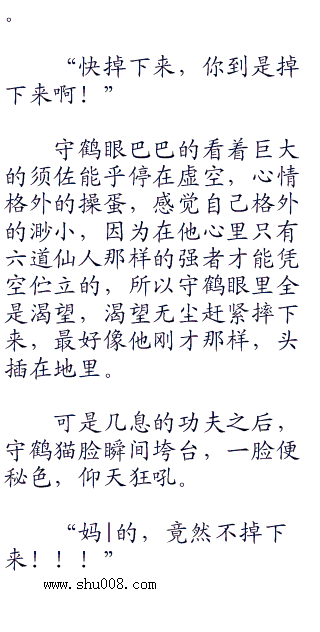 。
“快掉下来，你到是掉
下来啊！”
守鹤眼巴巴的看着巨大
的须佐能乎停在虚空，心情
格外的操蛋，感觉自己格外
的渺小，因为在他心里只有
六道仙人那样的强者才能凭
空伫立的，所以守鹤眼里全
是渴望，渴望无尘赶紧摔下
来，最好像他刚才那样，头
插在地里。
可是几息的功夫之后，
守鹤猫脸瞬间垮台，一脸便
秘色，仰天狂吼。
“妈|的，竟然不掉下
来！！！”
www.shu008.com